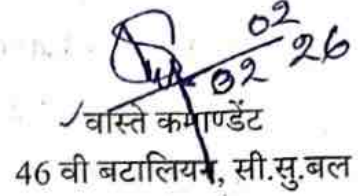 02
02 26
वास्ते कमाण्डेंट
46 वी बटालियन, सी.सु.बल